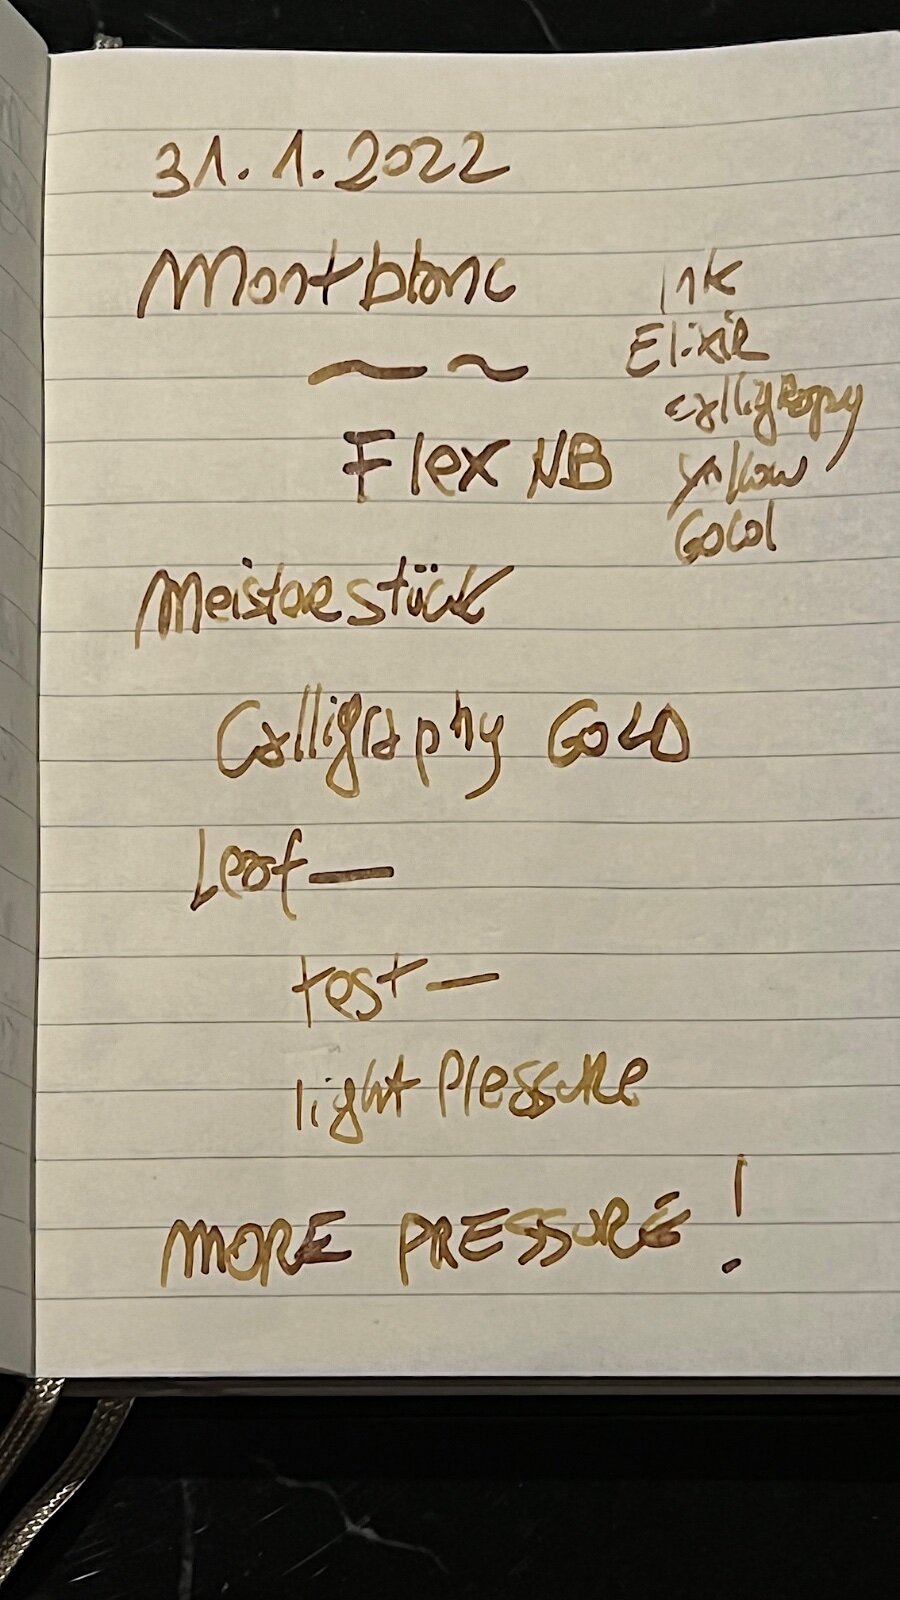 31.1.2022
Montblanc
Ink
Elixir
~ ~
calligrapy
Flex NB
yellow
Gold
Meisterstück
Calligraphy GOLD
Leaf —
test —
light Pressure
MORE PRESSURE!